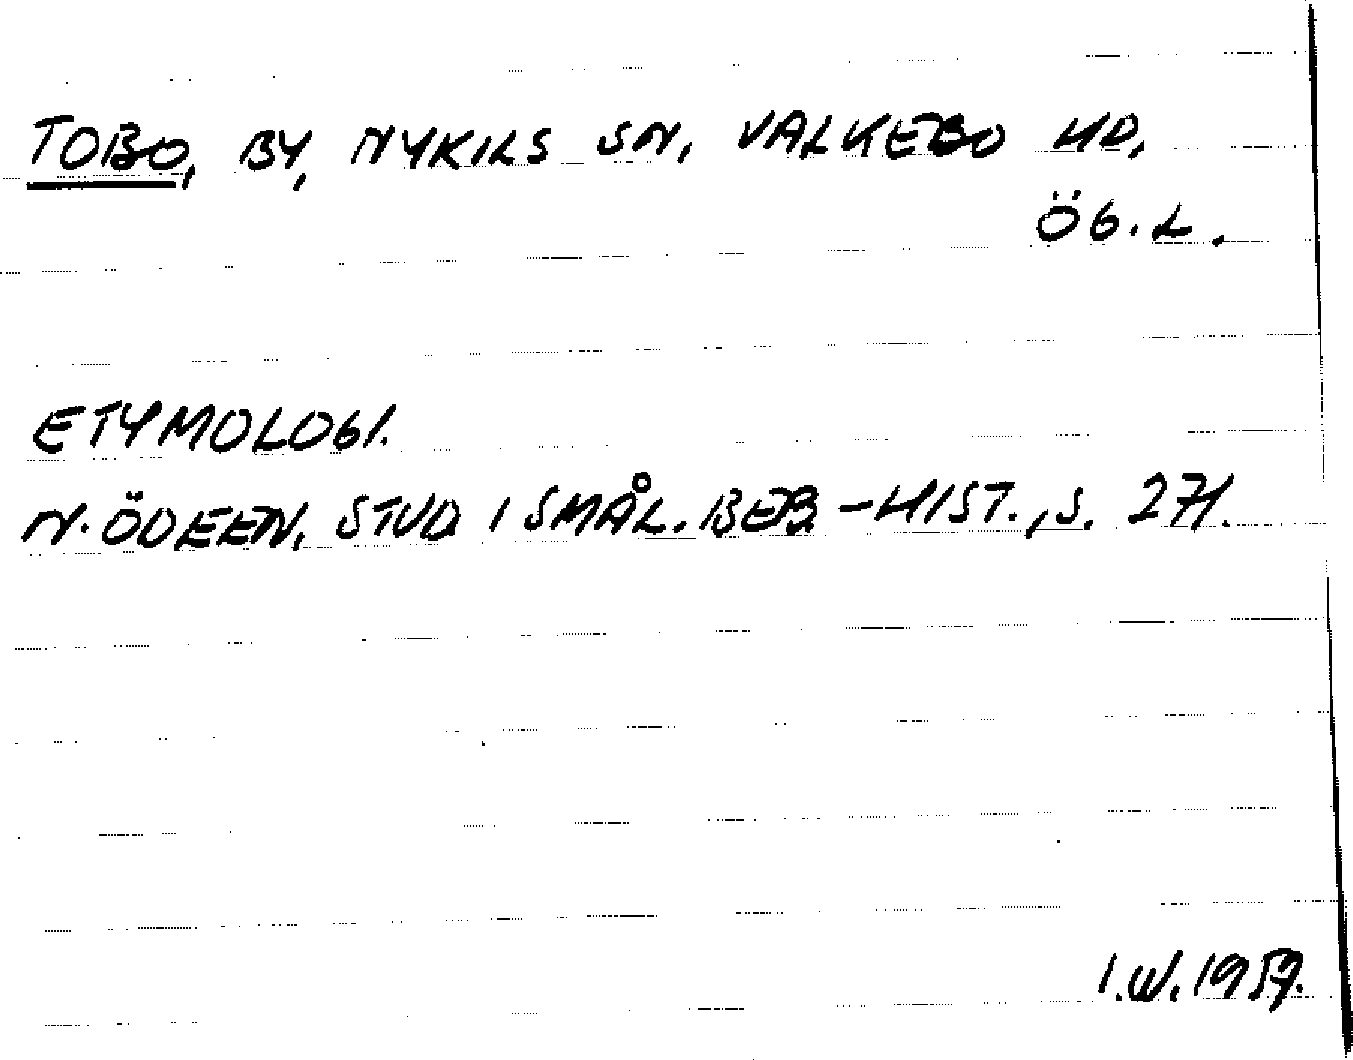 TOBO, BY, NYKILS SN, VALKEBO HD,
ÖG.L.
ETYMOLOGI.
N. ÖDEEN, STUD. I SMÅL. BEB.-HIST., S. 271.
I.W. 1959.